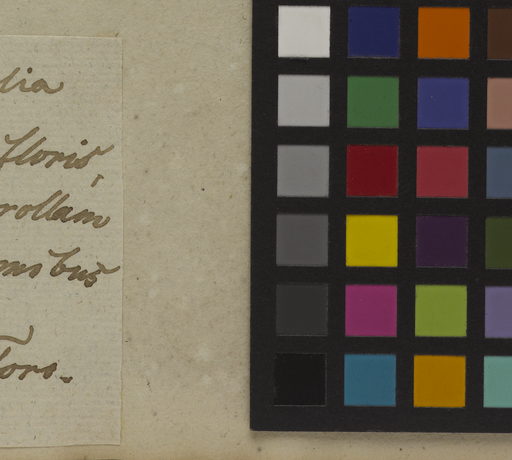 lia
floris,
rollam
onibus
Toro.